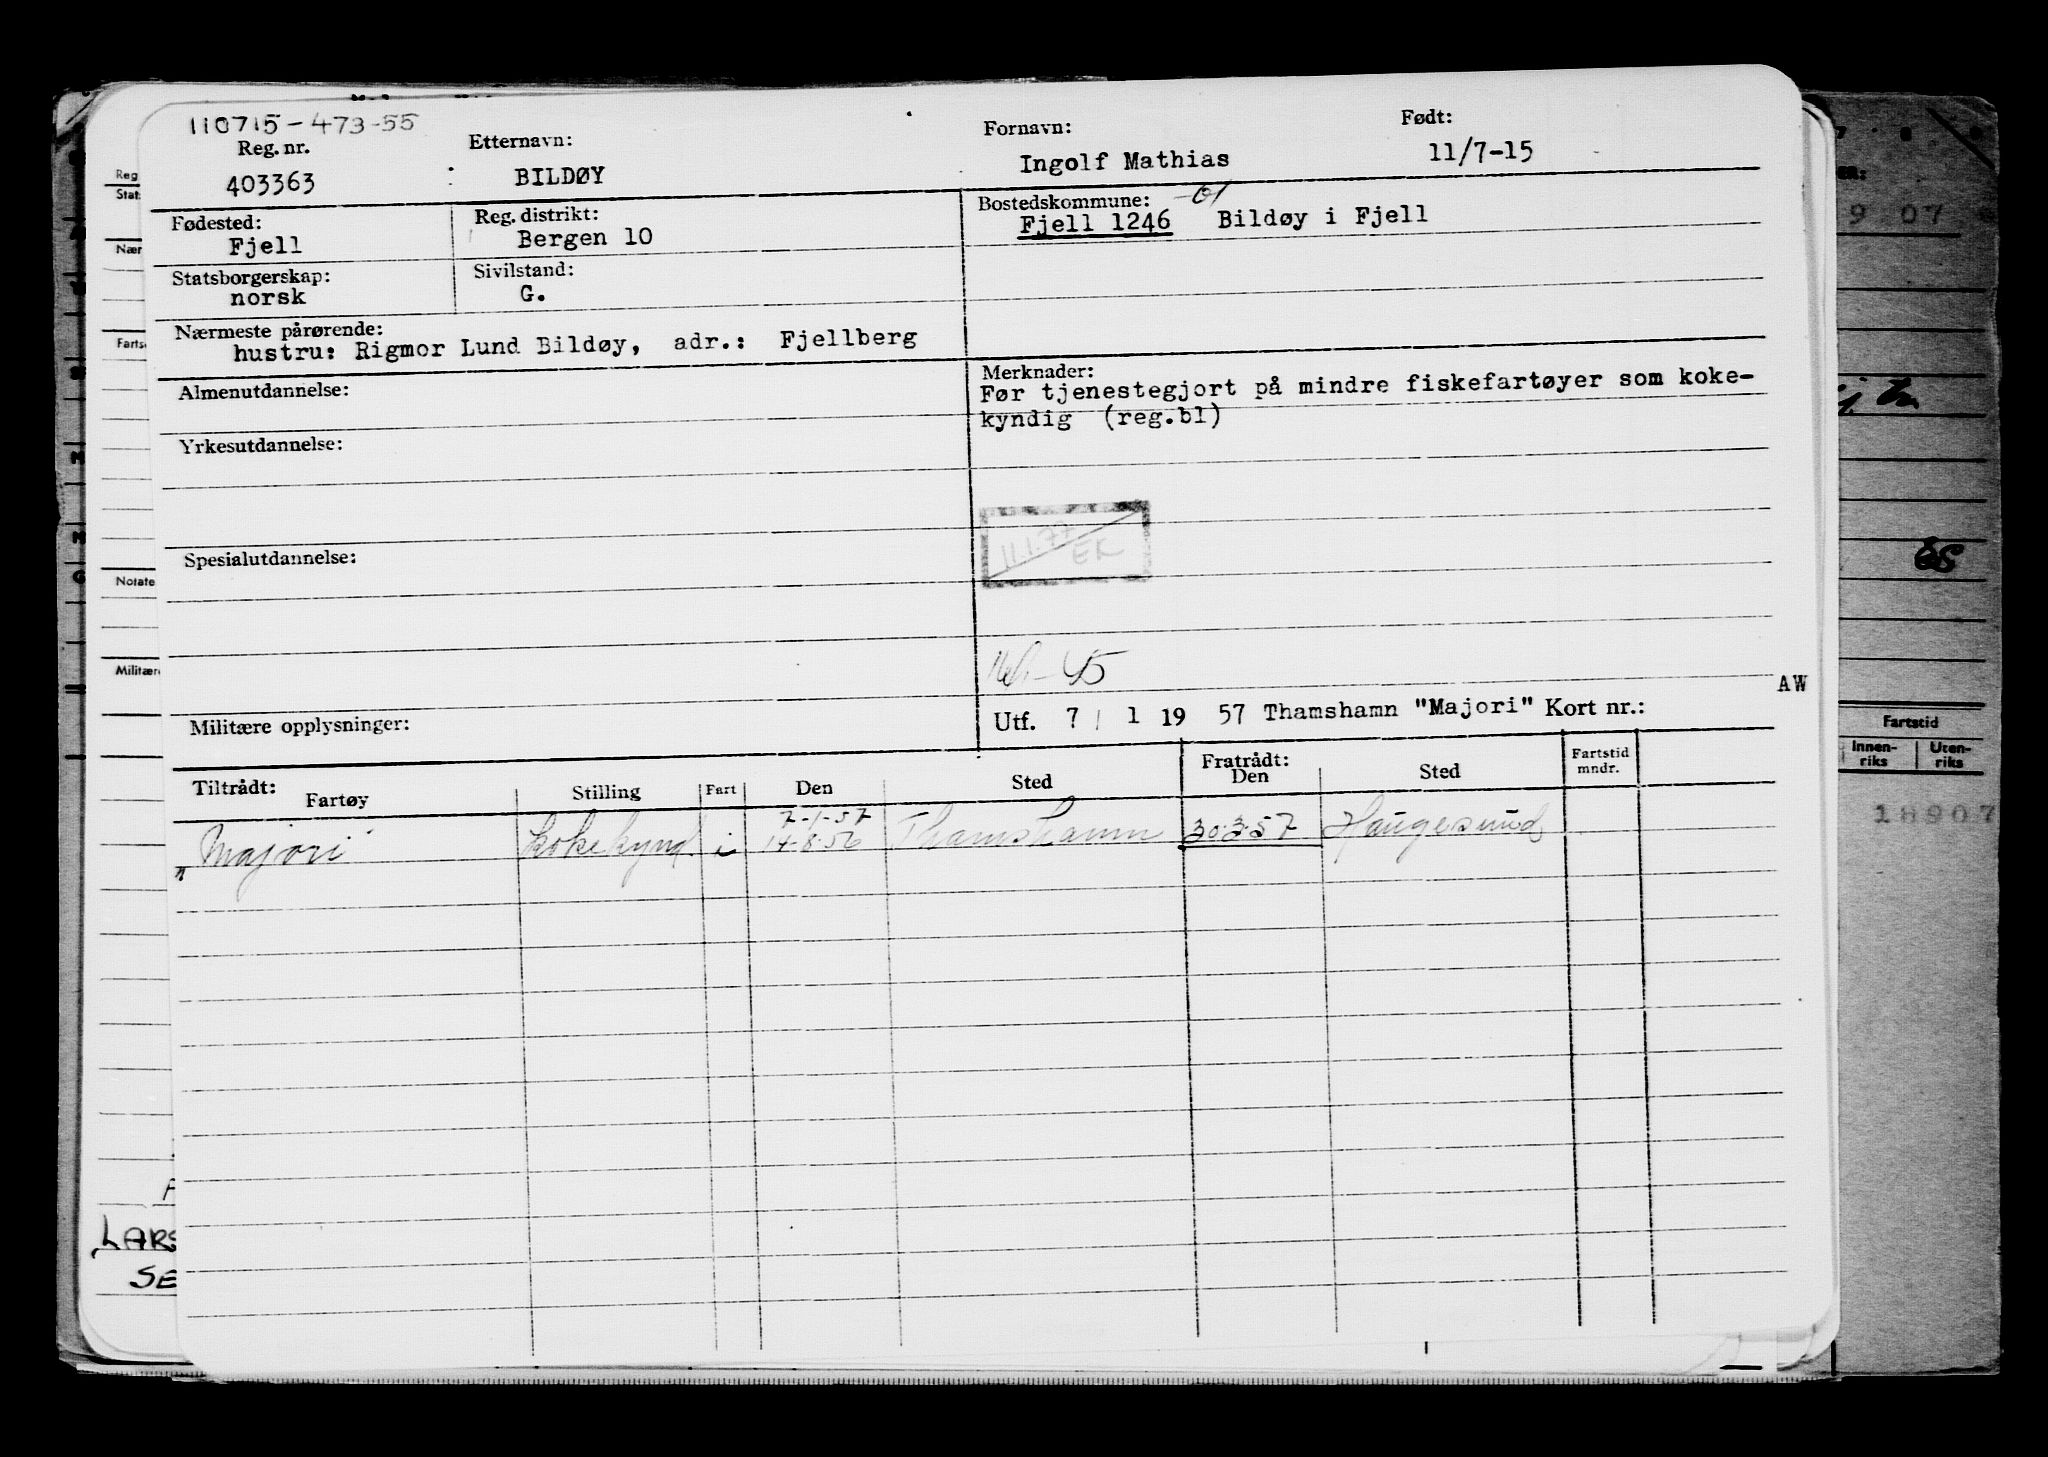 110715-473-55
Reg. nr. Etternavn: Fornavn: Født:
403363 BILDØY Ingolf Mathias 11/7-15
Fødested: Reg. distrikt: Bostedskommune: -01
Fjell Bergen 10 Fjell 1246 Bildøy i Fjell
Statsborgerskap: Sivilstand:
norsk G.
Nærmeste pårørende:
hustru: Rigmor Lund Bildøy, adr.: Fjellberg
Almenutdannelse: Merknader:
Før tjenestegjort på mindre fiskefartøyer som koke-
kyndig (reg.bl)
Yrkesutdannelse:
11.1.77
EK
Spesialutdannelse:
45
AW
Militære opplysninger: Utf. 7 / 1 19 57 Thamshamn "Majori" Kort nr.:
Tiltrådt: Fratrådt: Fartstid
Fartøy Stilling Fart Den Sted Den Sted mndr.
7-1-57
"Majori" kokekynd. i 14-8-56 Thamshamn 30.3.57 Haugesund
Reg
Stat
Nær
Fartsc
Notate
Militære
LARS
SE
ER:
9 07
ES
Fartstid
Innen-
riks
Uten-
riks
18907